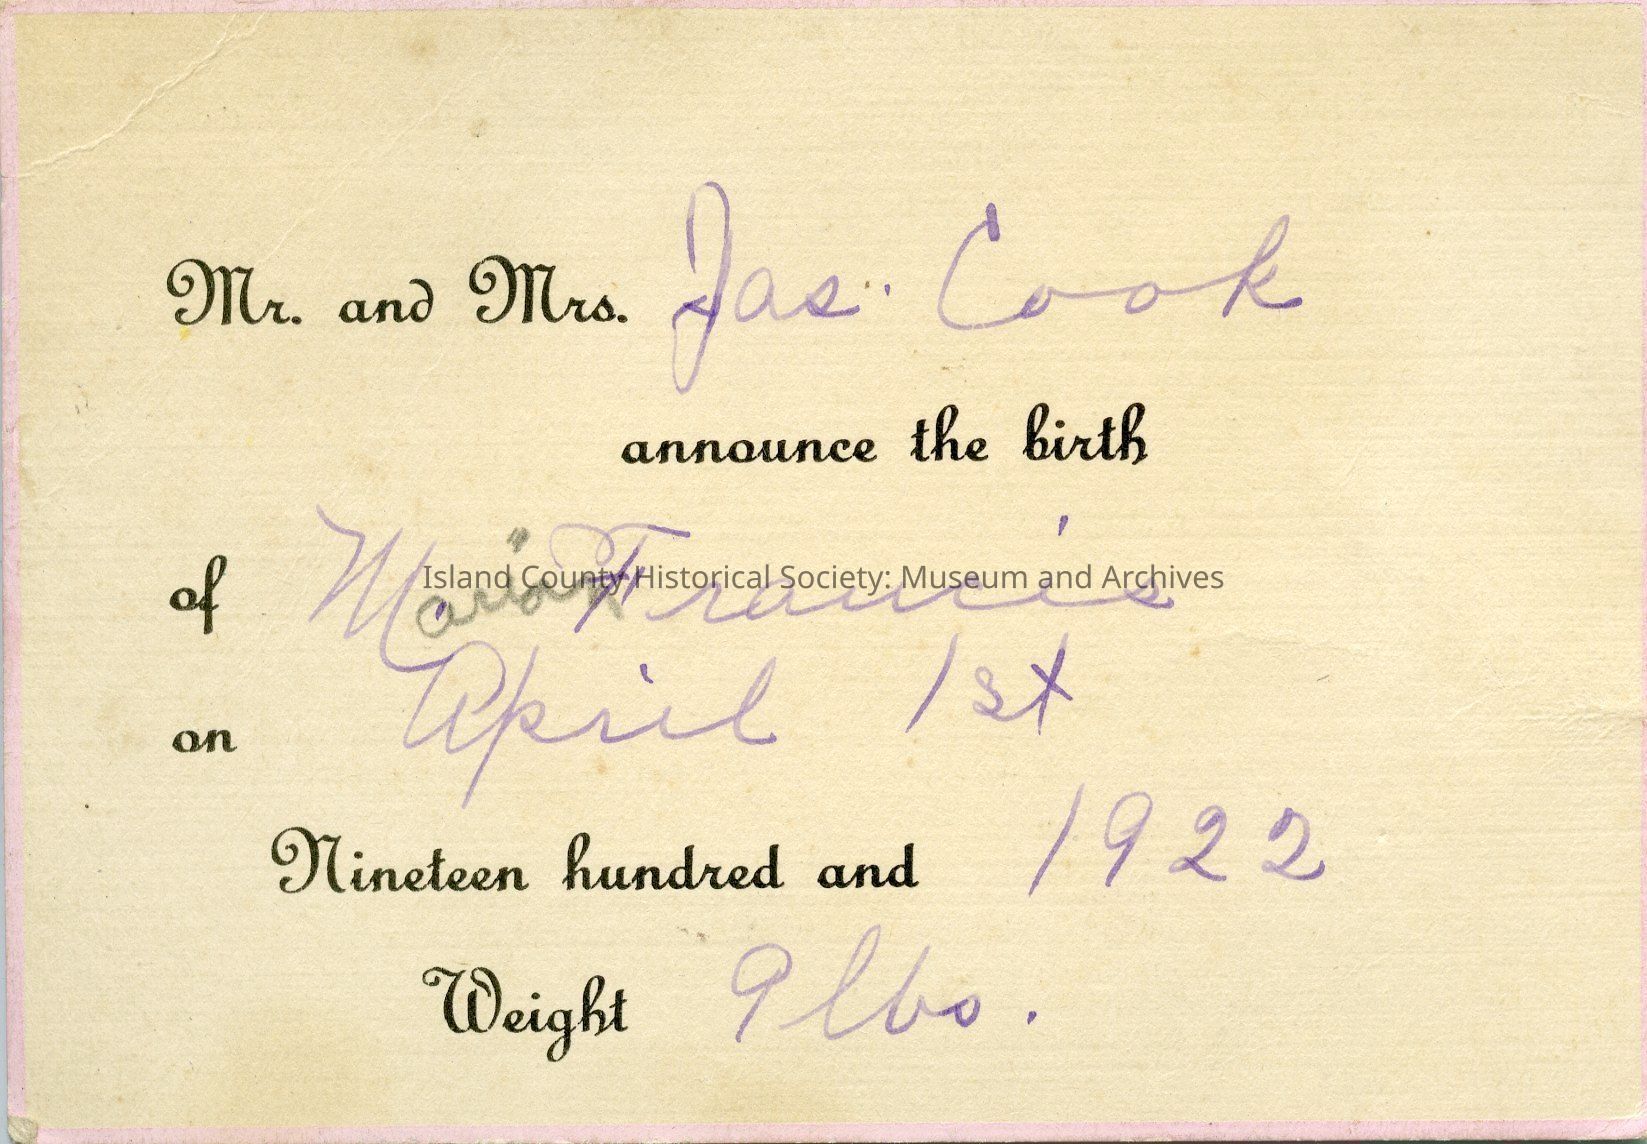 Mr. and Mrs. Jas. Cook
announce the birth
of Marion Francis
Island County Historical Society: Museum and Archives
on April 1st
Nineteen hundred and 1922
Weight 9 lbs.